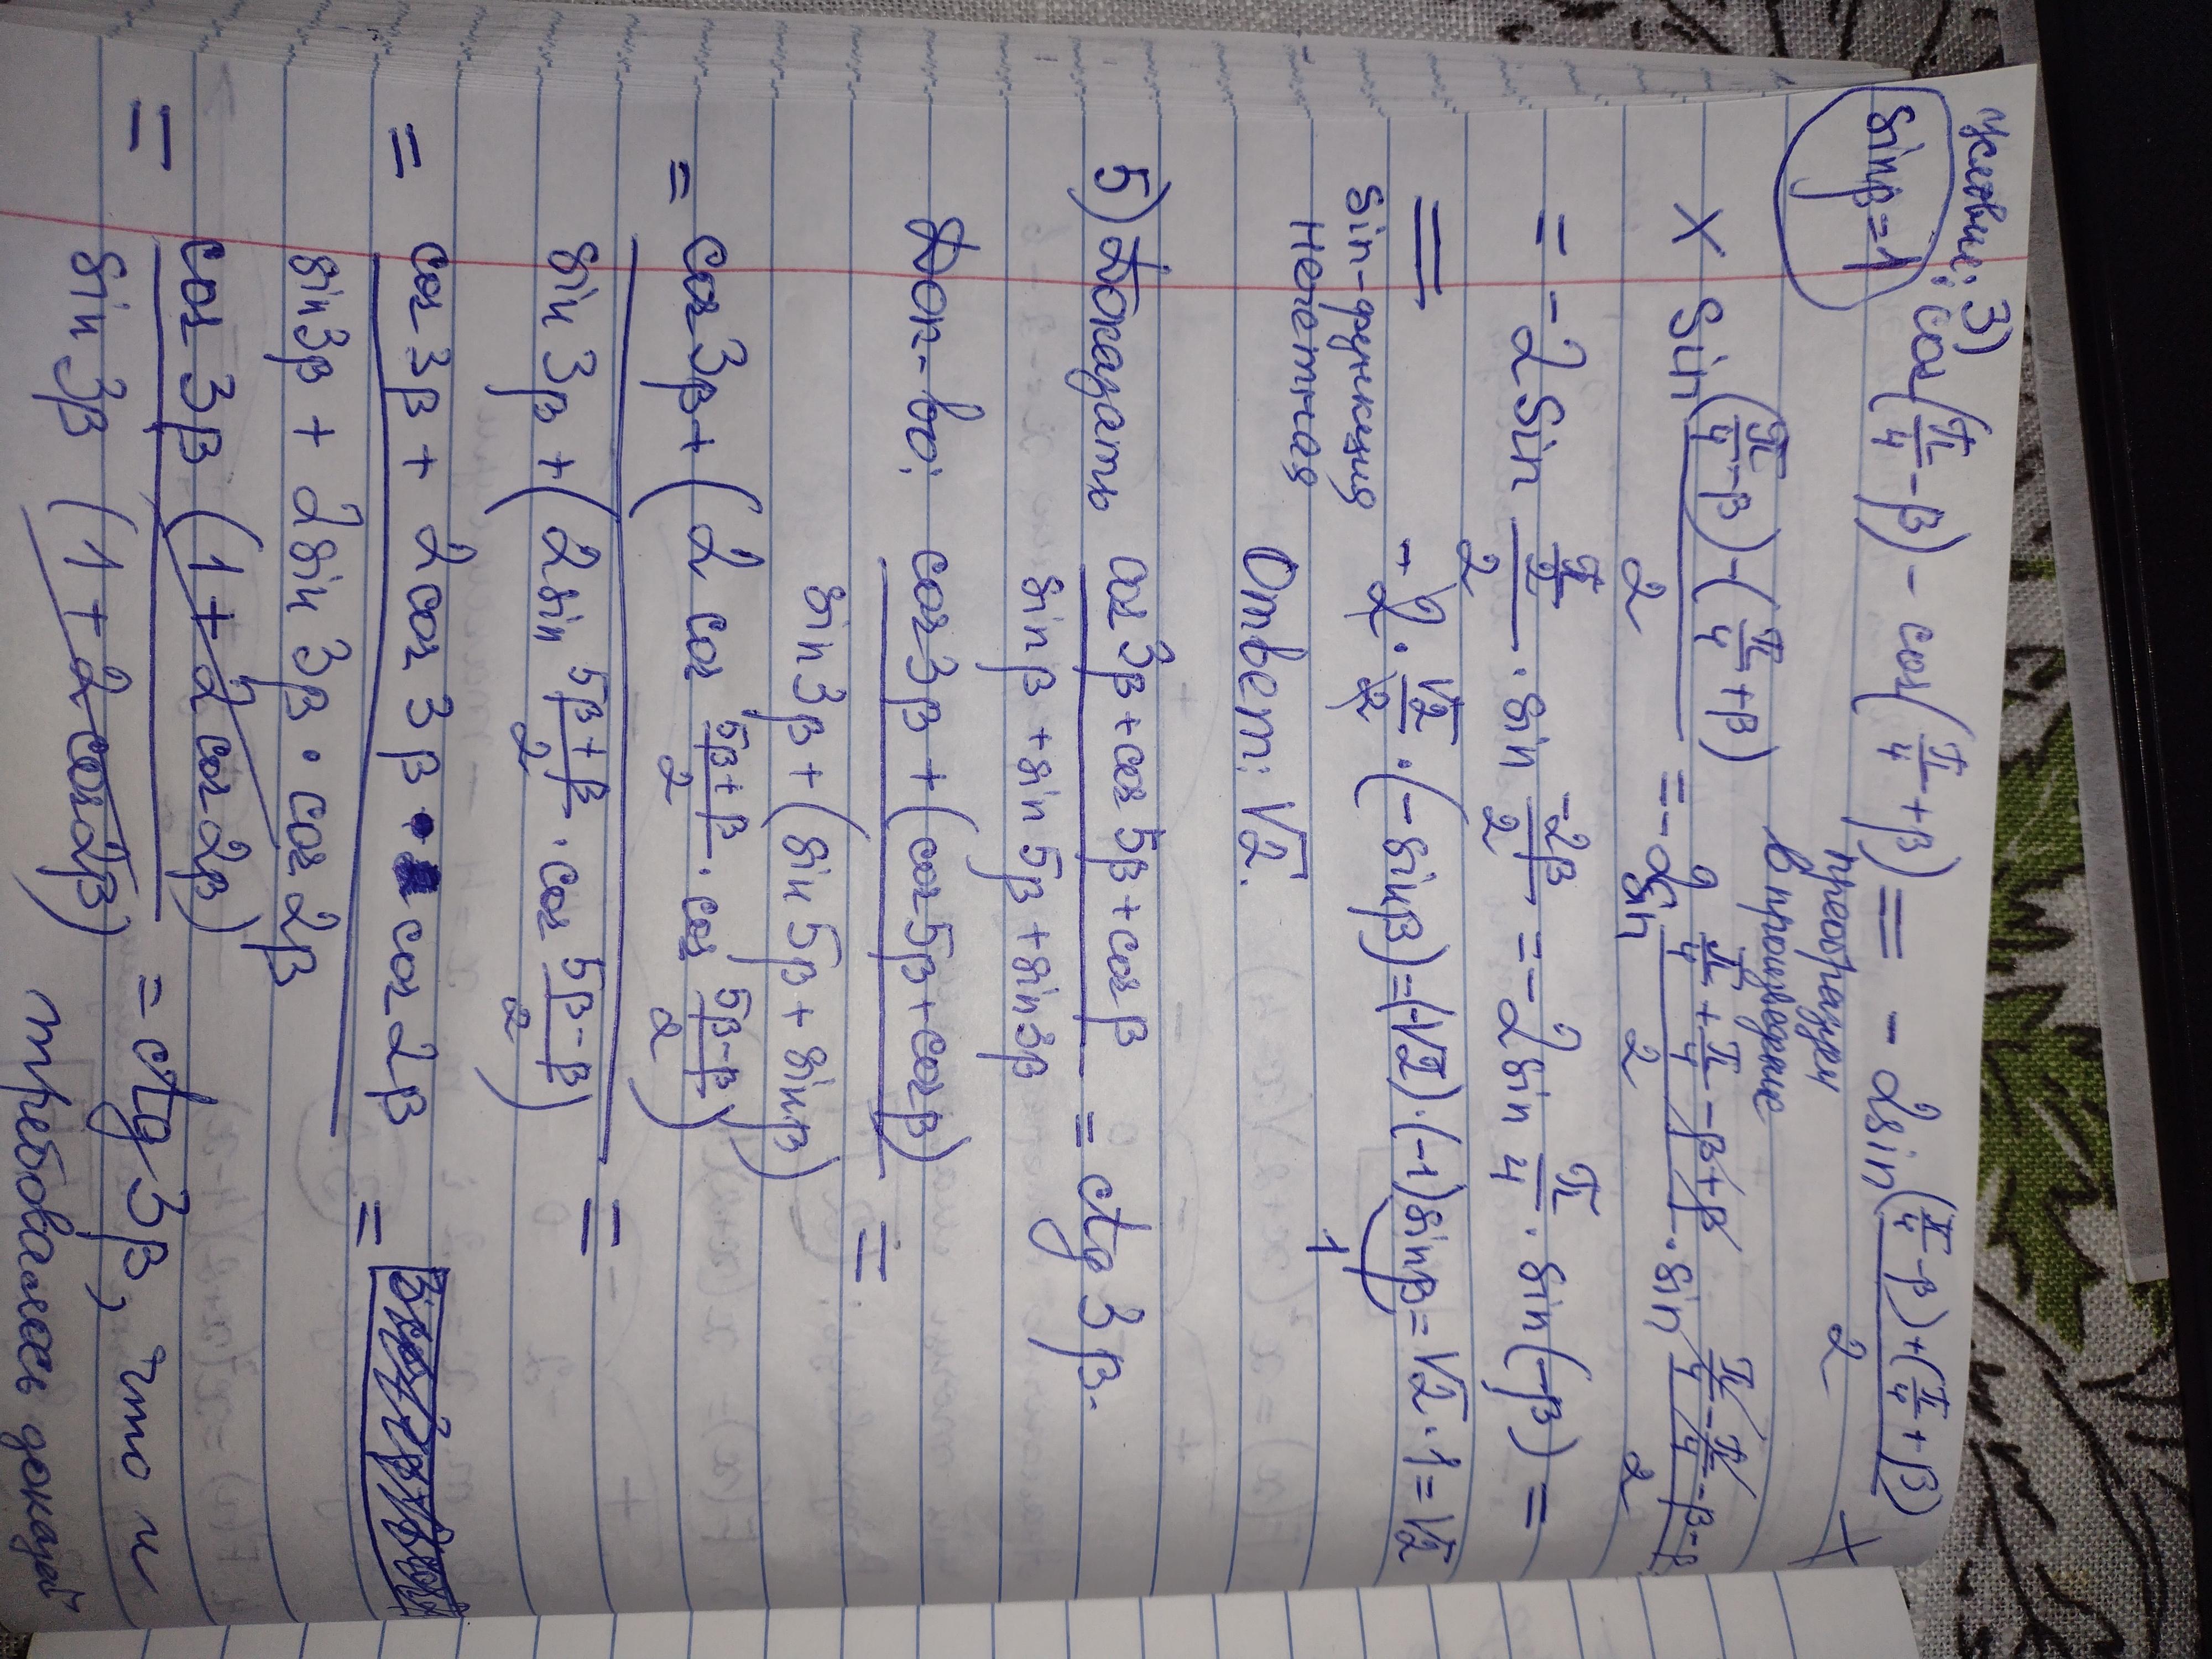 Условие: 3) cos(π/4 - β) - cos(π/4 + β) = - 2sin ((π/4 - β) + (π/4 + β))/2 ×
sinβ = 1
преобразуем
в произведение
× sin ((π/4 - β) - (π/4 + β))/2 = - 2sin (π/4 + π/4 - β + β)/2 · sin (π/4 - π/4 - β - β)/2
= - 2 sin (π/2)/2 · sin (-2β)/2 = - 2 sin π/4 · sin(-β) =
= - 2 · √2/2 · (- sinβ) = (-√2) · (-1) sinβ = √2 · 1 = √2
sin-функция
нечетная
1
Ответ: √2.
5) Доказать (cos 3β + cos 5β + cos β)/(sin β + sin 5β + sin 3β) = ctg 3β.
Док-во: (cos 3β + (cos 5β + cos β))/(sin 3β + (sin 5β + sin β)) =
= (cos 3β + (2 cos (5β + β)/2 · cos (5β - β)/2))/(sin 3β + (2 sin (5β + β)/2 · cos (5β - β)/2)) =
= (cos 3β + 2 cos 3β · cos 2β)/(sin 3β + 2 sin 3β · cos 2β) =
= (cos 3β (1 + 2 cos 2β))/(sin 3β (1 + 2 cos 2β)) = ctg 3β, что и
требовалось доказать